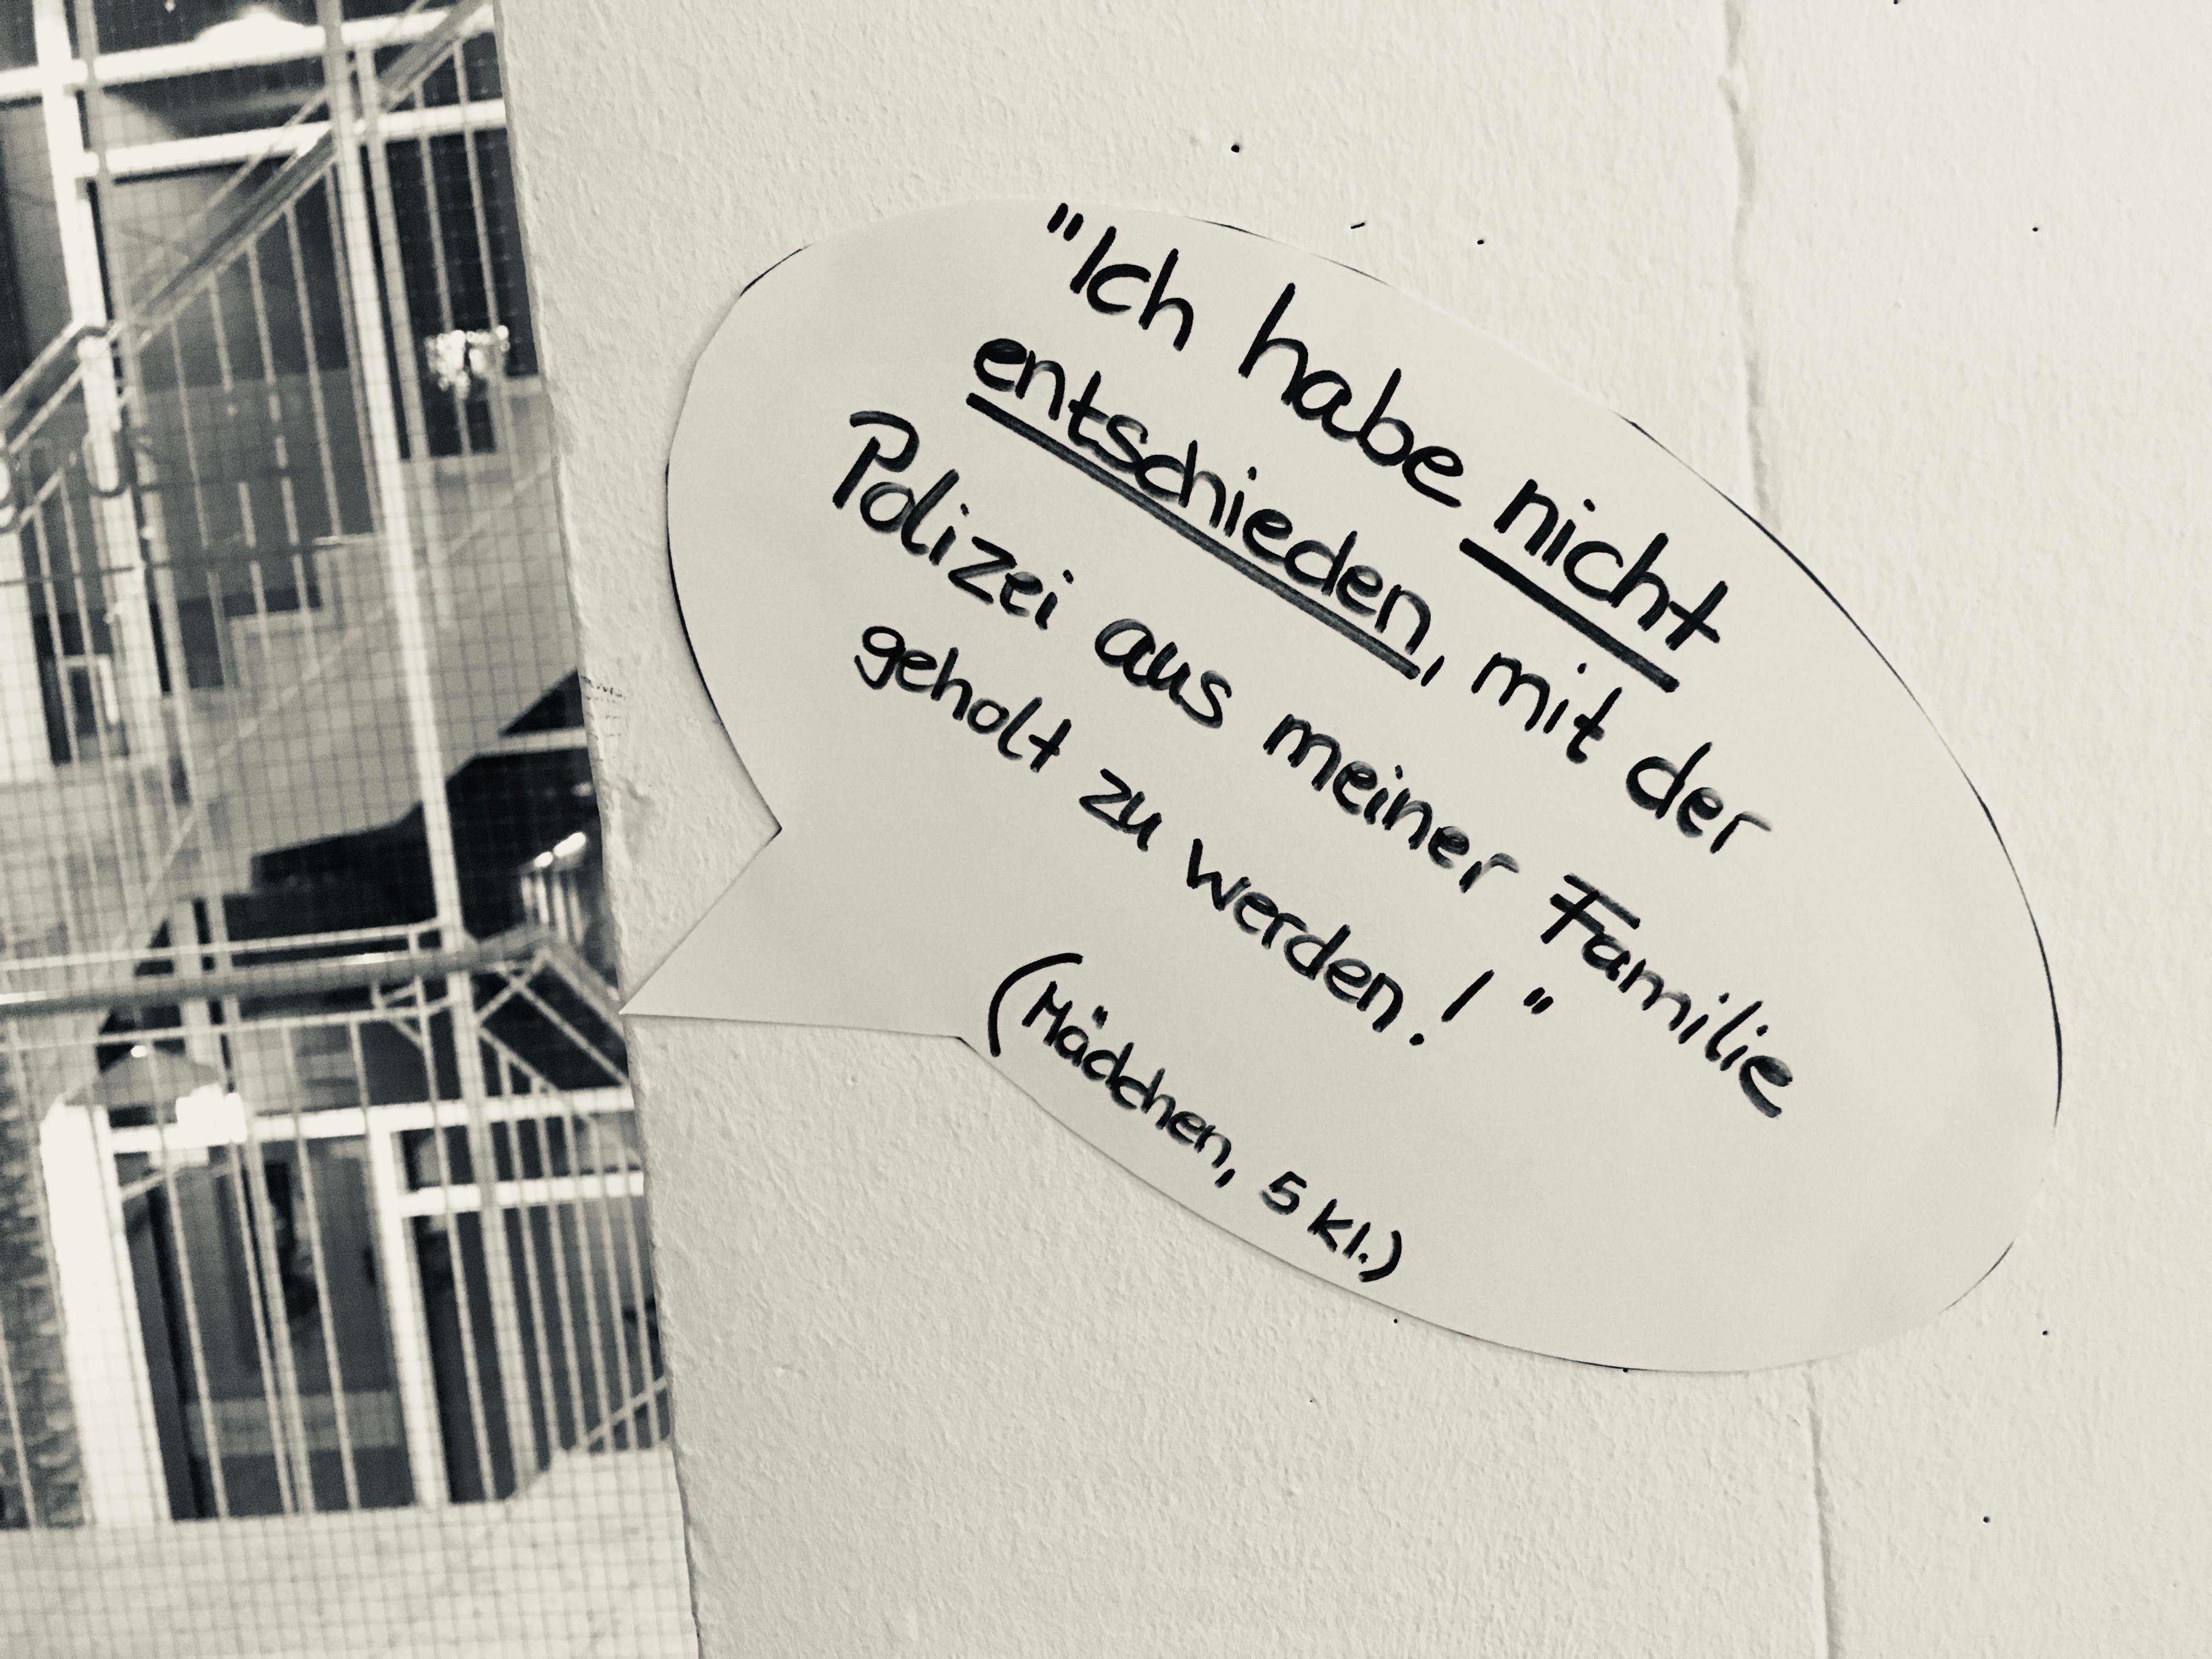 "Ich habe nicht
entschieden, mit der
Polizei aus meiner Familie
geholt zu werden!"
(Mädchen, 5 kl.)